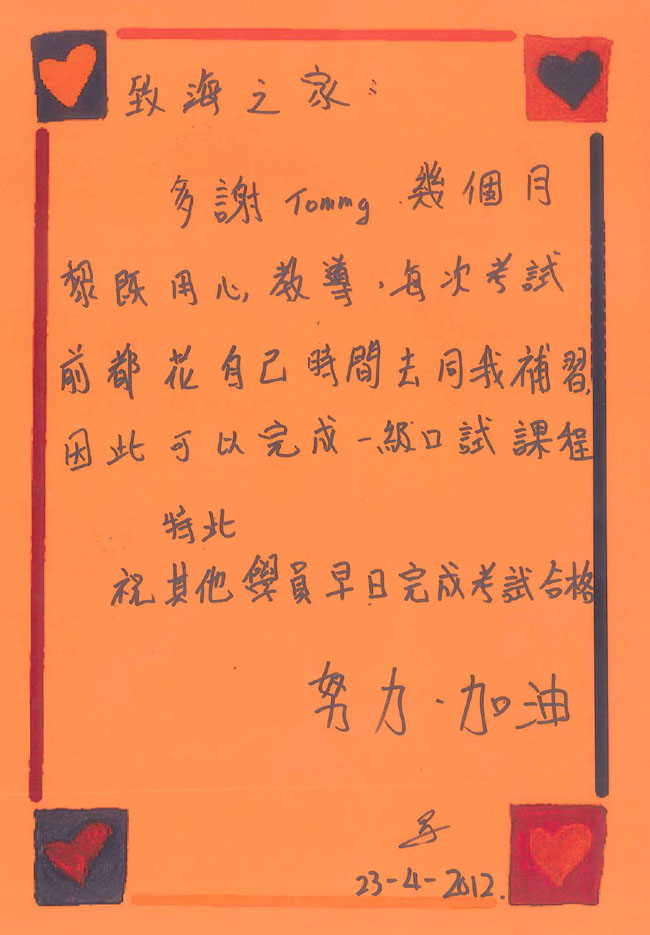 致海之家:
多謝 Tommy 幾個月
黎既用心教導,每次考試
前都花自己時間去同我補習,
因此可以完成一級口試課程
特此
祝其他學員早日完成考試合格
努力·加油
23-4-2012.